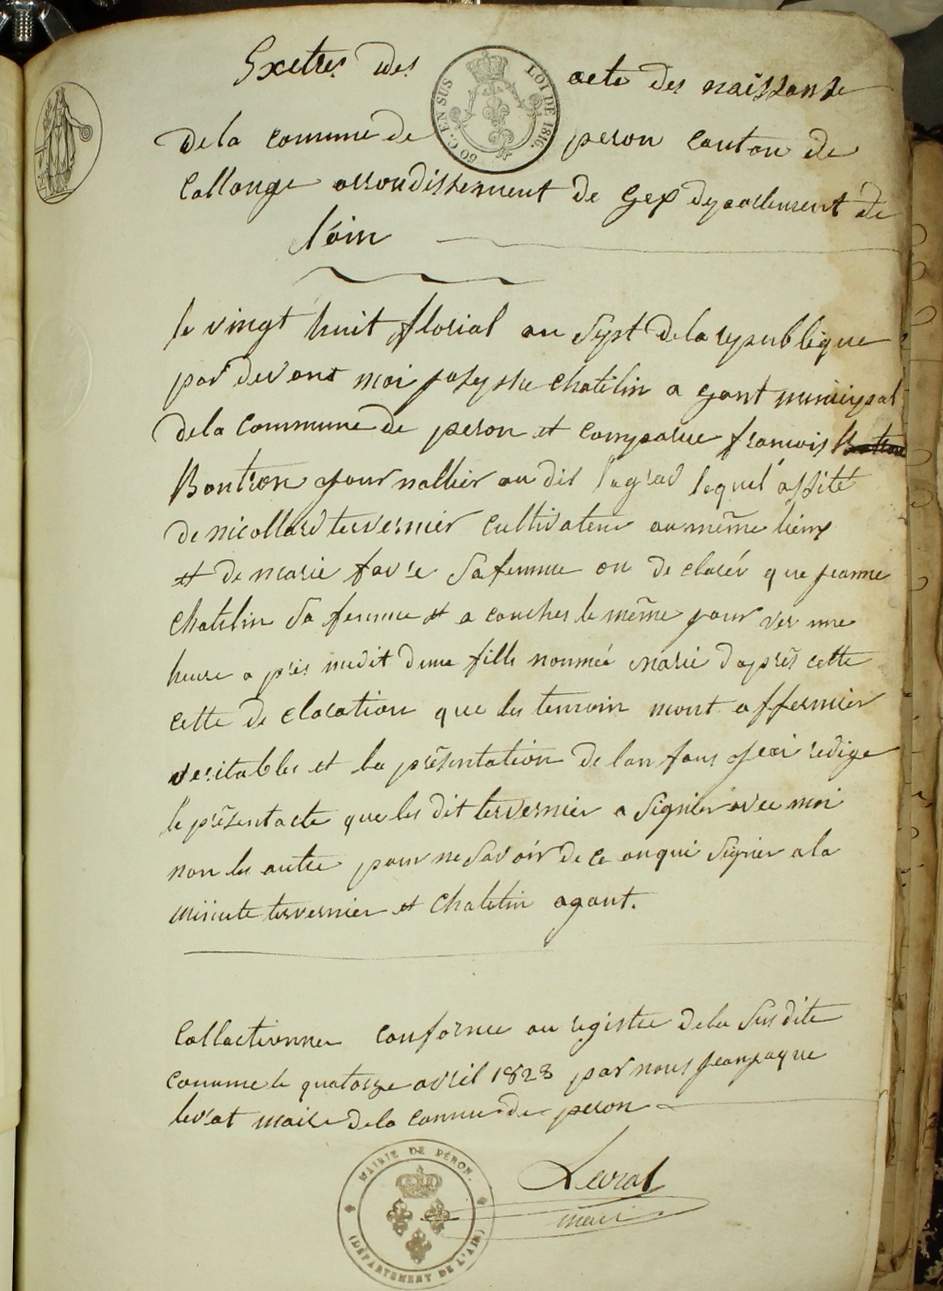 Exetres des acte des naissanse
de la comune de peron canton de
Collonge arrondissement de Gex departement de
l'ain
50 C. EN SUS
LOI DE 1816.
le vingt huit florial an sept de la republique
par devant moi josephe chatelin a gant municipal
de la commune de peron et comparue francois
Bontron journallier au dit lequel assité
de nicollard tervernier cultivateur au même lieux
et de marie favre sa femme on de claréé que jeanne
chatelin sa femme et a coucher le même jour ver une
heure a près midit dune fille nommée marie daprès cette
cette de claration que les temoin mont affermier
veritables et la présentation de lan fans jeai redige
le présentacte que les dit tervernier a Signier avec moi
non les autre pour ne savoir de ce anqui signier a la
minute tervernier et chatelin agant.
Collactionner conforme au registre de la Susdite
comune le quatorze avril 1828 par nous jeanjaque
levrat maire de la comune de peron
Levrat
maire
MAIRIE DE PÉRON.
(DÉPARTEMENT DE L'AIN)